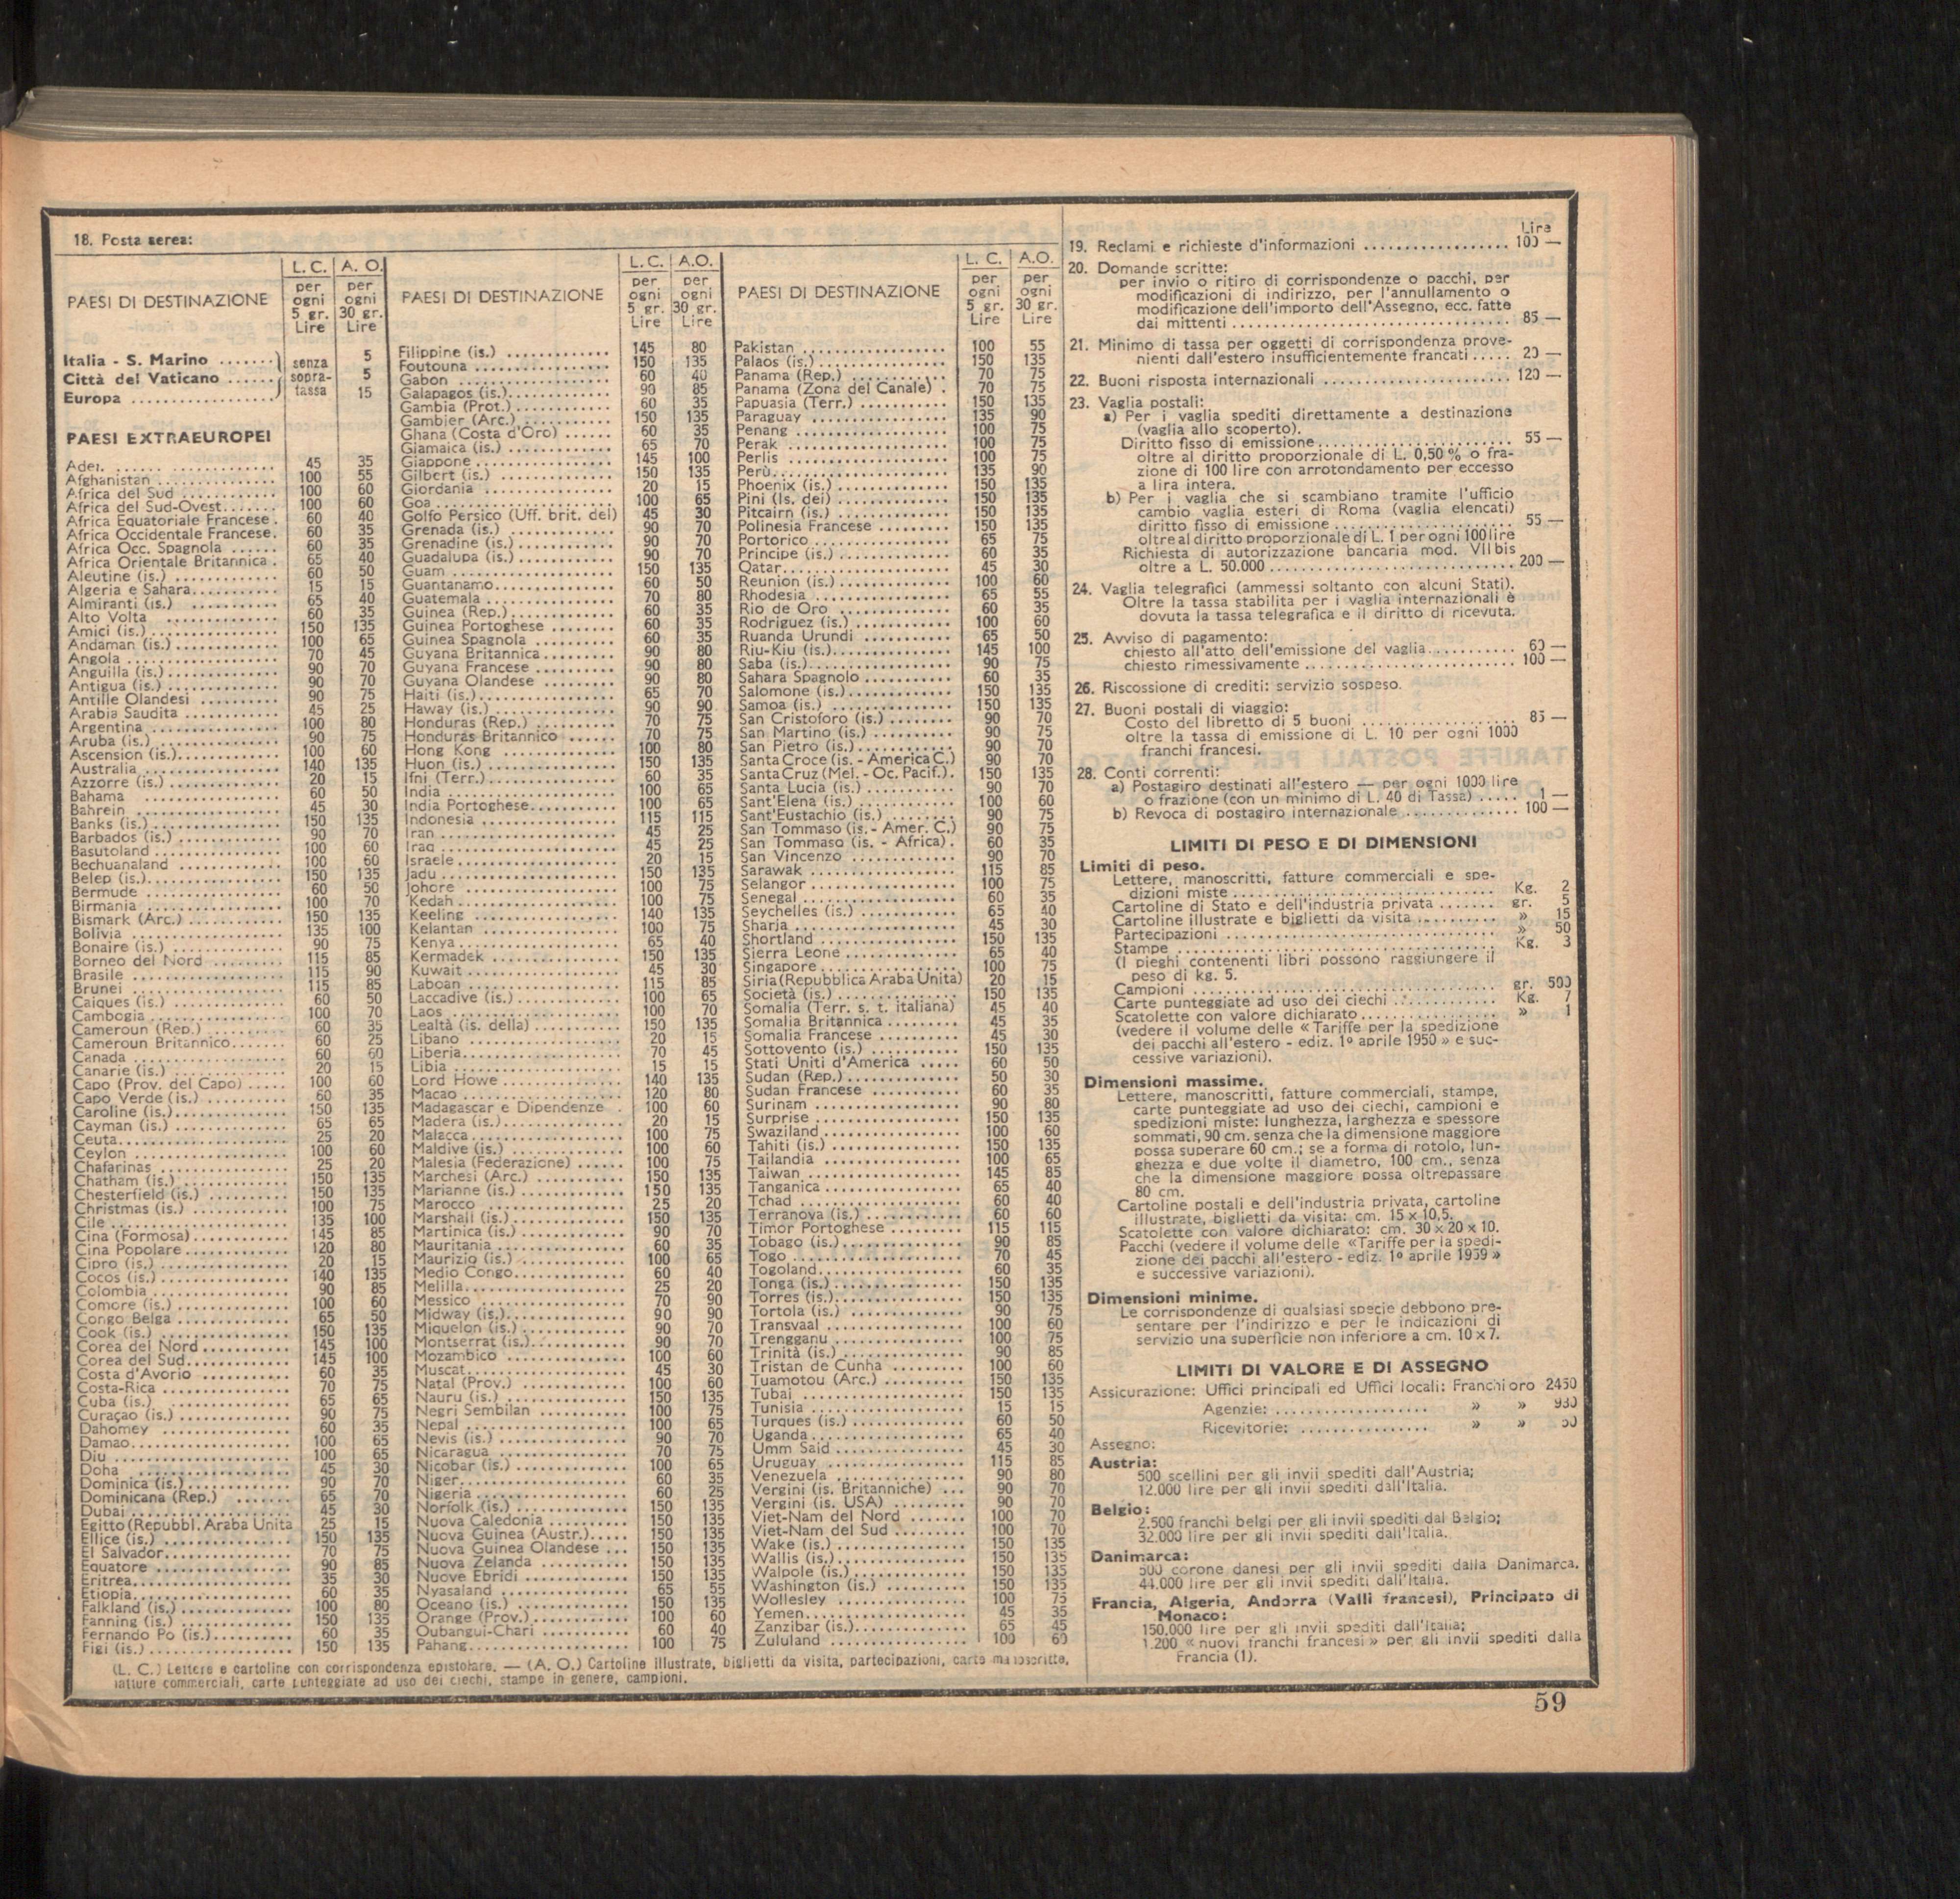 18. Posta aerea:
PAESI DI DESTINAZIONE
L. C. per ogni 5 gr. Lire
A. O. per ogni 30 gr. Lire
Italia - S. Marino ....... 5
Città del Vaticano ...... 5
Europa ................. 15
senza sopra-tassa
PAESI EXTRAEUROPEI
Aden ...... 45 35
Afghanistan ...... 100 55
Africa del Sud ...... 100 60
Africa del Sud-Ovest...... 100 60
Africa Equatoriale Francese . 60 40
Africa Occidentale Francese. 60 35
Africa Occ. Spagnola ...... 60 35
Africa Orientale Britannica . 65 40
Aleutine (is.) ...... 60 50
Algeria e Sahara...... 15 15
Almiranti (is.) ...... 65 40
Alto Volta ...... 60 35
Amici (is.) ...... 150 135
Andaman (is.) ...... 100 65
Angola ...... 70 45
Anguilla (is.) ...... 90 70
Antigua (is.) ...... 90 70
Antille Olandesi ...... 90 75
Arabia Saudita ...... 45 25
Argentina ...... 100 80
Aruba (is.) ...... 90 75
Ascension (is.)...... 100 60
Australia ...... 140 135
Azzorre (is.) ...... 20 15
Bahama ...... 60 50
Bahrein ...... 45 30
Banks (is.) ...... 150 135
Barbados (is.) ...... 90 70
Basutoland ...... 100 60
Bechuanaland ...... 100 60
Belep (is.)...... 150 135
Bermude ...... 60 50
Birmania ...... 100 70
Bismark (Arc.) ...... 150 135
Bolivia ...... 135 100
Bonaire (is.) ...... 90 75
Borneo del Nord ...... 115 85
Brasile ...... 115 90
Brunei ...... 115 85
Caiques (is.) ...... 60 50
Cambogia ...... 100 70
Cameroun (Rep.) ...... 60 35
Cameroun Britannico...... 60 25
Canada ...... 60 60
Canarie (is.) ...... 20 15
Capo (Prov. del Capo) ..... 100 60
Capo Verde (is.) ...... 60 35
Caroline (is.)...... 150 135
Cayman (is.) ...... 65 65
Ceuta...... 25 20
Ceylon ...... 100 60
Chafarinas ...... 25 20
Chatham (is.) ...... 150 135
Chesterfield (is.) ...... 150 135
Christmas (is.) ...... 100 75
Cile ...... 135 100
Cina (Formosa) ...... 145 85
Cina Popolare...... 120 80
Cipro (is.) ...... 20 15
Cocos (is.) ...... 140 135
Colombia ...... 90 85
Comore (is.) ...... 100 60
Congo Belga ...... 65 50
Cook (is.) ...... 150 135
Corea del Nord...... 145 100
Corea del Sud...... 145 100
Costa d'Avorio ...... 60 35
Costa-Rica ...... 70 75
Cuba (is.) ...... 65 65
Curaçao (is.) ...... 90 75
Dahomey ...... 60 35
Damao...... 100 65
Diu ...... 100 65
Doha ...... 45 30
Dominica (is.)...... 90 70
Dominicana (Rep.) ...... 65 70
Dubai ...... 45 30
Egitto (Repubbl. Araba Unita 25 15
Ellice (is.) ...... 150 135
El Salvador...... 70 75
Equatore ...... 90 85
Eritrea...... 35 30
Etiopia...... 60 35
Falkland (is.) ...... 100 80
Fanning (is.) ...... 150 135
Fernando Po (is.)...... 60 35
Figi (is.) ...... 150 135
PAESI DI DESTINAZIONE
L. C. per ogni 5 gr. Lire
A.O. per ogni 30 gr. Lire
Filippine (is.) ...... 145 80
Foutouna ...... 150 135
Gabon ...... 60 40
Galapagos (is.)...... 90 85
Gambia (Prot.)...... 60 35
Gambier (Arc.) ...... 150 135
Ghana (Costa d'Oro) ...... 60 35
Giamaica (is.) ...... 65 70
Giappone ...... 145 100
Gilbert (is.) ...... 150 135
Giordania ...... 20 15
Goa ...... 100 65
Golfo Persico (Uff. brit. dei) 45 30
Grenada (is.) ...... 90 70
Grenadine (is.)...... 90 70
Guadalupa (is.)...... 90 70
Guam ...... 150 135
Guantanamo...... 60 50
Guatemala ...... 70 80
Guinea (Rep.) ...... 60 35
Guinea Portoghese ...... 60 35
Guinea Spagnola ...... 60 35
Guyana Britannica...... 90 80
Guyana Francese ...... 90 80
Guyana Olandese ...... 90 80
Haiti (is.)...... 65 70
Haway (is.) ...... 90 90
Honduras (Rep.) ...... 70 75
Honduras Britannico ..... 70 75
Hong Kong ...... 100 80
Huon (is.) ...... 150 135
Ifni (Terr.)...... 60 35
India ...... 100 65
India Portoghese...... 100 65
Indonesia ...... 115 115
Iran ...... 45 25
Iraq ...... 45 25
Israele ...... 20 15
Jadu ...... 150 135
Johore ...... 100 75
Kedah ...... 100 75
Keeling ...... 140 135
Kelantan ...... 100 75
Kenya...... 65 40
Kermadek ...... 150 135
Kuwait ...... 45 30
Laboan ...... 115 85
Laccadive (is.)...... 100 65
Laos ...... 100 70
Lealtà (is. della) ...... 150 135
Libano ...... 20 15
Liberia...... 70 45
Libia ...... 15 15
Lord Howe ...... 140 135
Macao ...... 120 80
Madagascar e Dipendenze . 100 60
Madera (is.)...... 20 15
Malacca ...... 100 75
Maldive (is.) ...... 100 60
Malesia (Federazione) ...... 100 75
Marchesi (Arc.) ...... 150 135
Marianne (is.) ...... 150 135
Marocco ...... 25 20
Marshall (is.)...... 150 135
Martinica (is.) ...... 90 70
Mauritania ...... 60 35
Maurizio (is.) ...... 100 65
Medio Congo...... 60 40
Melilla...... 25 20
Messico ...... 70 90
Midway (is.)...... 90 90
Miquelon (is.) ...... 90 70
Montserrat (is.)...... 90 70
Mozambico ...... 100 60
Muscat...... 45 30
Natal (Prov.) ...... 100 60
Nauru (is.) ...... 150 135
Negri Sembilan ...... 100 75
Nepal ...... 100 65
Nevis (is.) ...... 90 70
Nicaragua ...... 70 75
Nicobar (is.) ...... 100 65
Niger...... 60 35
Nigeria ...... 60 25
Norfolk (is.) ...... 150 135
Nuova Caledonia ...... 150 135
Nuova Guinea (Austr.)..... 150 135
Nuova Guinea Olandese ... 150 135
Nuova Zelanda ...... 150 135
Nuove Ebridi ...... 150 135
Nyasaland ...... 65 55
Oceano (is.) ...... 150 135
Orange (Prov.)...... 100 60
Oubangui-Chari ...... 60 40
Pahang...... 100 75
PAESI DI DESTINAZIONE
L. C. per ogni 5 gr. Lire
A.O. per ogni 30 gr. Lire
Pakistan ...... 100 55
Palaos (is.) ...... 150 135
Panama (Rep.) ...... 70 75
Panama (Zona del Canale) . 70 75
Papuasia (Terr.) ...... 150 135
Paraguay ...... 135 90
Penang ...... 100 75
Perak ...... 100 75
Perlis ...... 100 75
Perù...... 135 90
Phoenix (is.) ...... 150 135
Pini (Is. dei) ...... 150 135
Pitcairn (is.) ...... 150 135
Polinesia Francese ...... 150 135
Portorico ...... 65 75
Principe (is.) ...... 60 35
Qatar...... 45 30
Reunion (is.) ...... 100 60
Rhodesia ...... 65 55
Rio de Oro ...... 60 35
Rodriguez (is.) ...... 100 60
Ruanda Urundi ...... 65 50
Riu-Kiu (is.)...... 145 100
Saba (is.)...... 90 75
Sahara Spagnolo ...... 60 35
Salomone (is.) ...... 150 135
Samoa (is.) ...... 150 135
San Cristoforo (is.) ...... 90 70
San Martino (is.) ...... 90 75
San Pietro (is.)...... 90 70
Santa Croce (is. - America C.) 90 70
Santa Cruz (Mel. - Oc. Pacif.). 150 135
Santa Lucia (is.) ...... 90 70
Sant'Elena (is.) ...... 100 60
Sant'Eustachio (is.) ...... 90 75
San Tommaso (is. - Amer. C.) 90 75
San Tommaso (is. - Africa) . 60 35
San Vincenzo ...... 90 70
Sarawak ...... 115 85
Selangor ...... 100 75
Senegal ...... 60 35
Seychelles (is.) ...... 65 40
Sharja ...... 45 30
Shortland ...... 150 135
Sierra Leone ...... 65 40
Singapore ...... 100 75
Siria (Repubblica Araba Unita) 20 15
Società (is.) ...... 150 135
Somalia (Terr. s. t. italiana) 45 40
Somalia Britannica ...... 45 35
Somalia Francese ...... 45 30
Sottovento (is.) ...... 150 135
Stati Uniti d'America ..... 60 50
Sudan (Rep.)...... 50 30
Sudan Francese ...... 60 35
Surinam ...... 90 80
Surprise ...... 150 135
Swaziland ...... 100 60
Tahiti (is.) ...... 150 135
Tailandia ...... 100 65
Taiwan ...... 145 85
Tanganica ...... 65 40
Tchad ...... 60 40
Terranova (is.) ...... 60 60
Timor Portoghese ...... 115 115
Tobago (is.) ...... 90 85
Togo ...... 70 45
Togoland ...... 60 35
Tonga (is.) ...... 150 135
Torres (is.)...... 150 135
Tortola (is.) ...... 90 75
Transvaal ...... 100 60
Trengganu ...... 100 75
Trinità (is.) ...... 90 85
Tristan de Cunha ...... 100 60
Tuamotou (Arc.) ...... 150 135
Tubai ...... 150 135
Tunisia ...... 15 15
Turques (is.) ...... 60 50
Uganda ...... 65 40
Umm Said ...... 45 30
Uruguay ...... 115 85
Venezuela ...... 90 80
Vergini (is. Britanniche) ... 90 70
Vergini (is. USA) ...... 90 70
Viet-Nam del Nord ...... 100 70
Viet-Nam del Sud ...... 100 70
Wake (is.) ...... 150 135
Wallis (is.)...... 150 135
Walpole (is.)...... 150 135
Washington (is.) ...... 150 135
Wollesley ...... 100 75
Yemen...... 45 35
Zanzibar (is.)...... 65 45
Zululand ...... 100 60
(L. C.) Lettere e cartoline con corrispondenza epistolare. — (A. O.) Cartoline illustrate, biglietti da visita, partecipazioni, carte manoscritte,
fatture commerciali, carte punteggiate ad uso dei ciechi, stampe in genere, campioni.
Lire
19. Reclami e richieste d'informazioni ...... 100 —
20. Domande scritte:
per invio o ritiro di corrispondenze o pacchi, per
modificazioni di indirizzo, per l'annullamento o
modificazione dell'importo dell'Assegno, ecc. fatte
dai mittenti ...... 85 —
21. Minimo di tassa per oggetti di corrispondenza prove-
nienti dall'estero insufficientemente francati ..... 20 —
22. Buoni risposta internazionali ...... 120 —
23. Vaglia postali:
a) Per i vaglia spediti direttamente a destinazione
(vaglia allo scoperto).
Diritto fisso di emissione...... 55 —
oltre al diritto proporzionale di L. 0,50 % o fra-
zione di 100 lire con arrotondamento per eccesso
a lira intera.
b) Per i vaglia che si scambiano tramite l'ufficio
cambio vaglia esteri di Roma (vaglia elencati)
diritto fisso di emissione ...... 55 —
oltre al diritto proporzionale di L. 1 per ogni 100 lire
Richiesta di autorizzazione bancaria mod. VII bis
oltre a L. 50.000 ...... 200 —
24. Vaglia telegrafici (ammessi soltanto con alcuni Stati).
Oltre la tassa stabilita per i vaglia internazionali è
dovuta la tassa telegrafica e il diritto di ricevuta.
25. Avviso di pagamento:
chiesto all'atto dell'emissione del vaglia...... 60 —
chiesto rimessivamente ...... 100 —
26. Riscossione di crediti: servizio sospeso.
27. Buoni postali di viaggio:
Costo del libretto di 5 buoni ...... 85 —
oltre la tassa di emissione di L. 10 per ogni 1000
franchi francesi.
28. Conti correnti:
a) Postagiro destinati all'estero — per ogni 1000 lire
o frazione (con un minimo di L. 40 di Tassa) ..... 1 —
b) Revoca di postagiro internazionale ...... 100 —
LIMITI DI PESO E DI DIMENSIONI
Limiti di peso.
Lettere, manoscritti, fatture commerciali e spe-
dizioni miste ...... Kg. 2
Cartoline di Stato e dell'industria privata ....... gr. 5
Cartoline illustrate e biglietti da visita ...... » 15
Partecipazioni ...... » 50
Stampe ...... Kg. 3
(I pieghi contenenti libri possono raggiungere il
peso di kg. 5.
Campioni ...... gr. 500
Carte punteggiate ad uso dei ciechi ...... Kg. 7
Scatolette con valore dichiarato ...... » 1
(vedere il volume delle « Tariffe per la spedizione
dei pacchi all'estero - ediz. 1º aprile 1950 » e suc-
cessive variazioni).
Dimensioni massime.
Lettere, manoscritti, fatture commerciali, stampe,
carte punteggiate ad uso dei ciechi, campioni e
spedizioni miste: lunghezza, larghezza e spessore
sommati, 90 cm. senza che la dimensione maggiore
possa superare 60 cm.; se a forma di rotolo, lun-
ghezza e due volte il diametro, 100 cm., senza
che la dimensione maggiore possa oltrepassare
80 cm.
Cartoline postali e dell'industria privata, cartoline
illustrate, biglietti da visita: cm. 15 x 10,5.
Scatolette con valore dichiarato: cm. 30 x 20 x 10.
Pacchi (vedere il volume delle «Tariffe per la spedi-
zione dei pacchi all'estero - ediz. 1º aprile 1959 »
e successive variazioni).
Dimensioni minime.
Le corrispondenze di qualsiasi specie debbono pre-
sentare per l'indirizzo e per le indicazioni di
servizio una superficie non inferiore a cm. 10 x 7.
LIMITI DI VALORE E DI ASSEGNO
Assicurazione: Uffici principali ed Uffici locali: Franchi oro 2450
Agenzie: ...... » » 930
Ricevitorie: ...... » » 50
Assegno:
Austria:
500 scellini per gli invii spediti dall'Austria;
12.000 lire per gli invii spediti dall'Italia.
Belgio:
2.500 franchi belgi per gli invii spediti dal Belgio;
32.000 lire per gli invii spediti dall'Italia.
Danimarca:
500 corone danesi per gli invii spediti dalla Danimarca.
44.000 lire per gli invii spediti dall'Italia.
Francia, Algeria, Andorra (Valli francesi), Principato di
Monaco:
150.000 lire per gli invii spediti dall'Italia;
1.200 « nuovi franchi francesi » per gli invii spediti dalla
Francia (1).
59